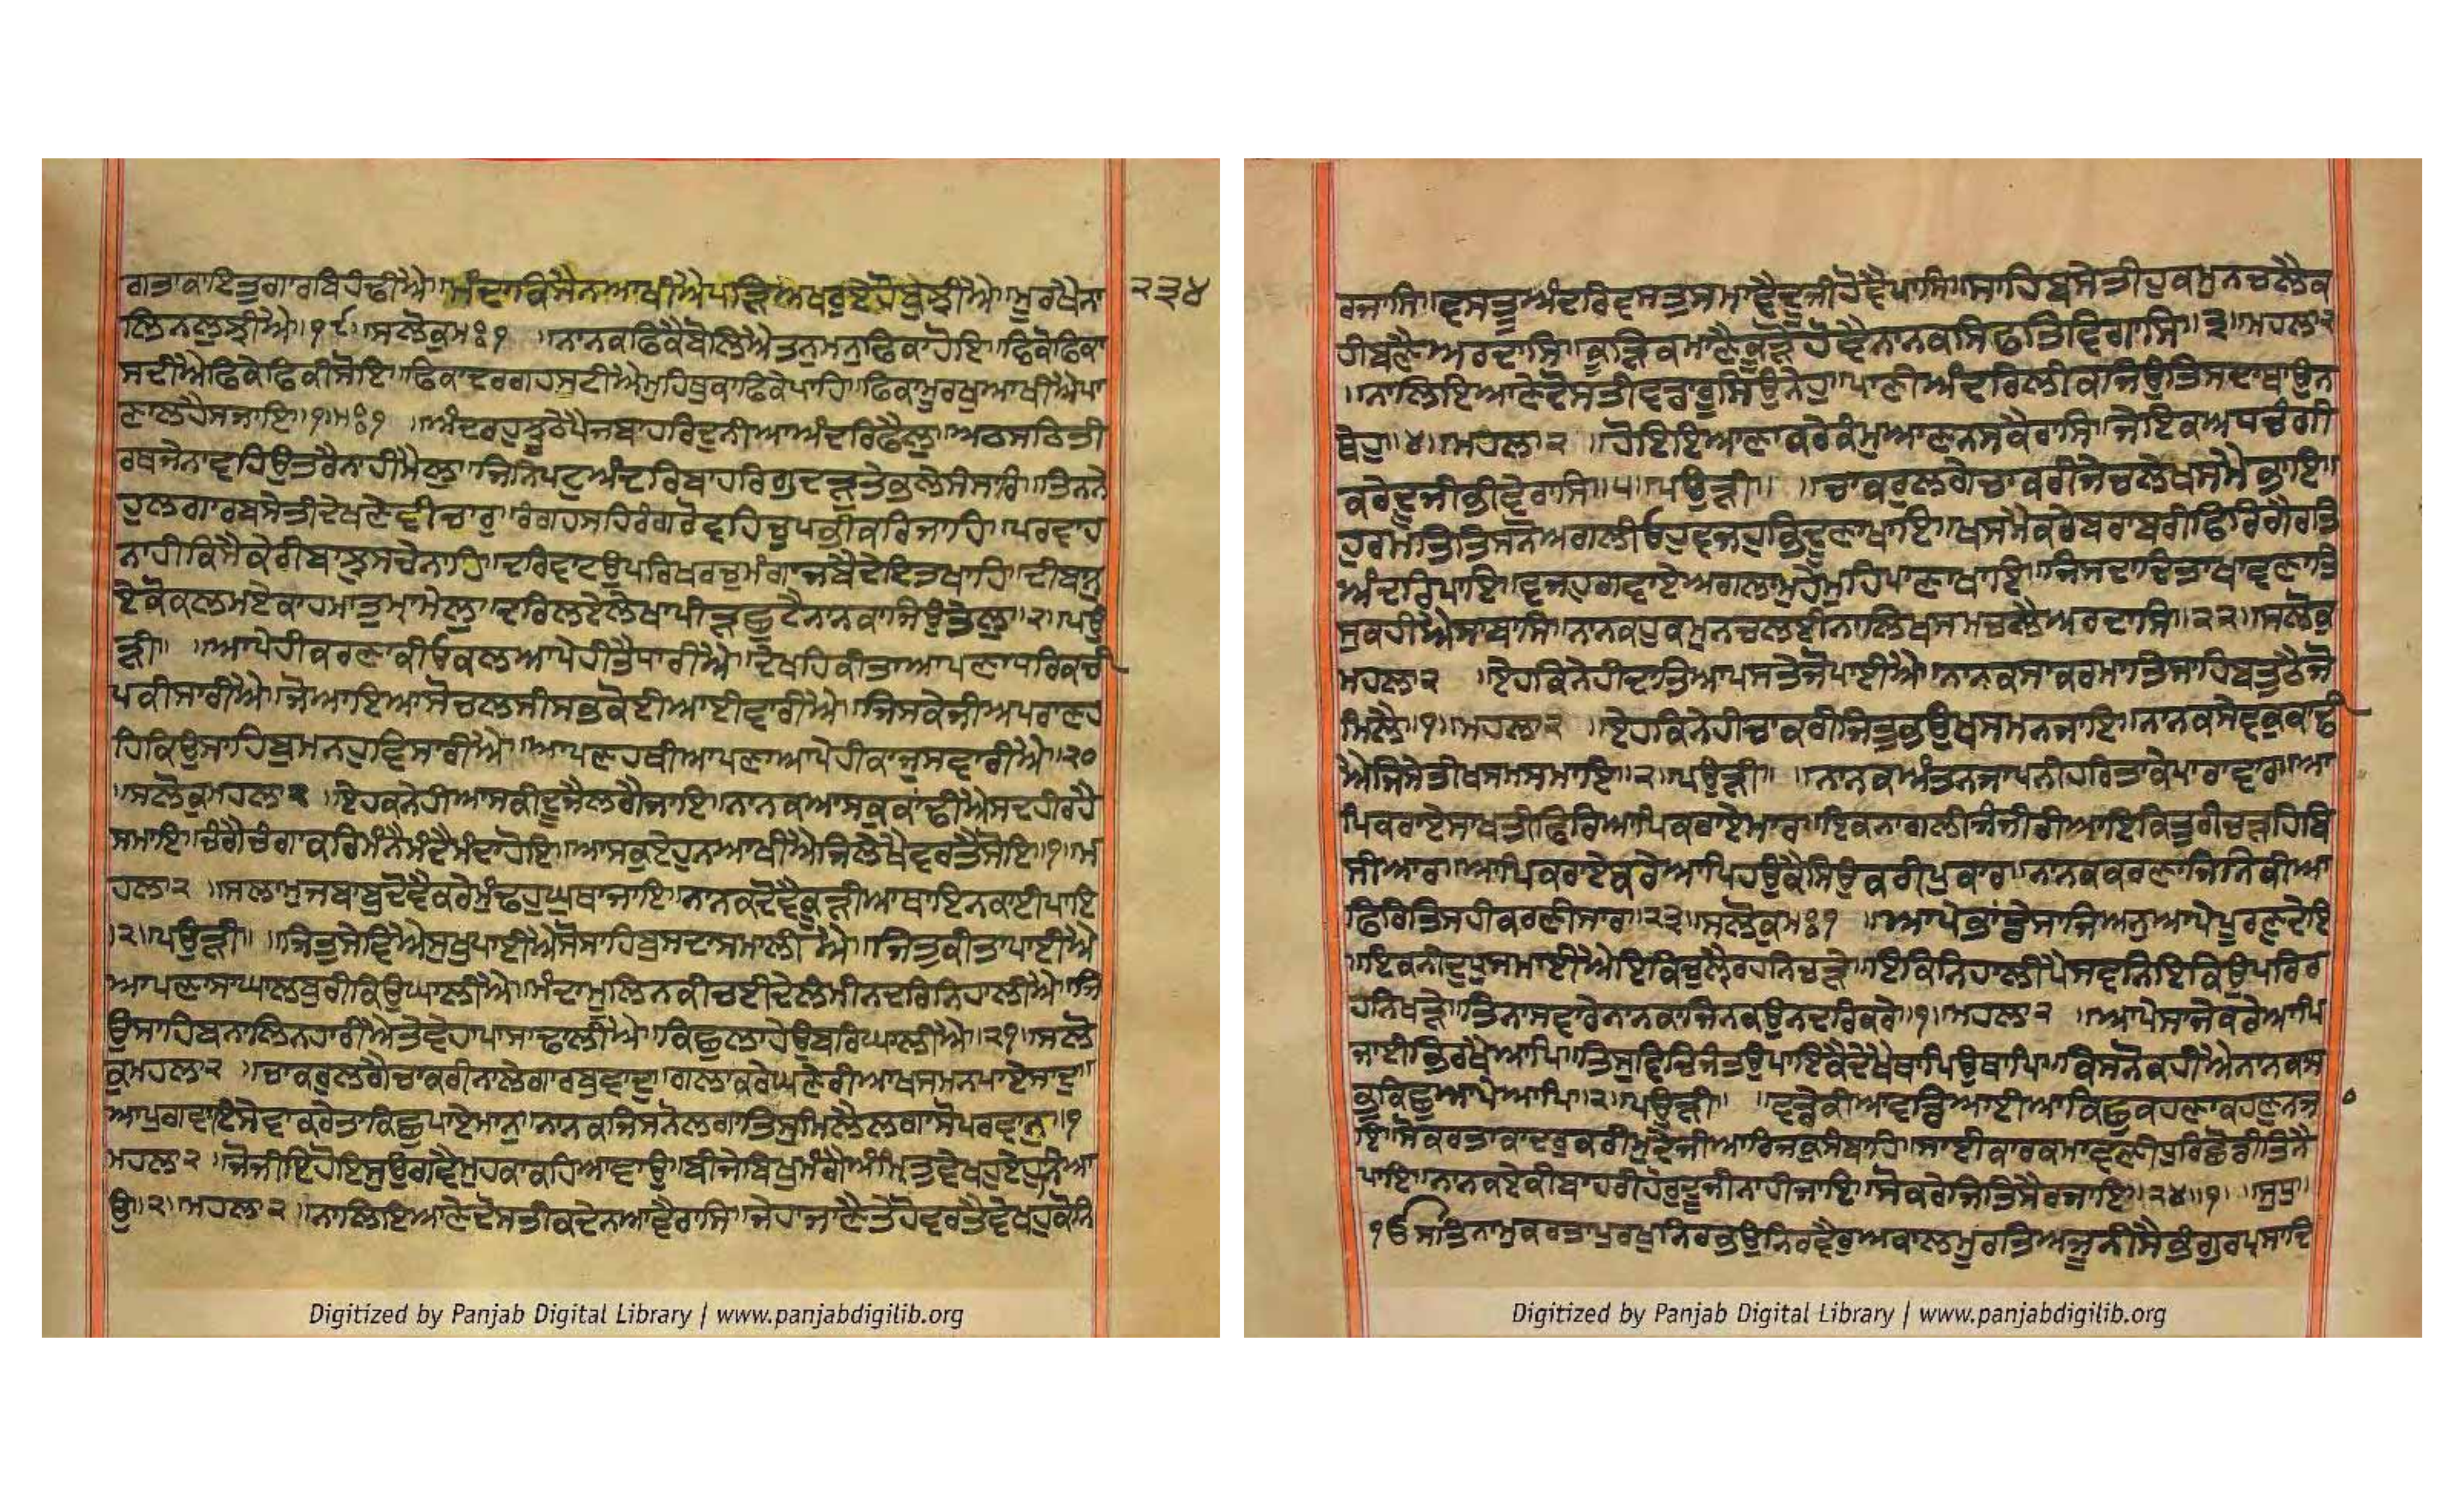 ਗਤਾਕਾਇਤੁਗਾਰਬਿਹੰਢੀਐ॥ਮੰਦਾਕਿਸੈਨਆਖੀਐਪੜਿਅਖਰੁਏਹੋਬੁਝੀਐ॥ਮੂਰਖੈਨਾ ੨੩੪
ਲਿਨਲੁਝੀਐ॥੧੯॥ਸਲੋਕੁਮਃ੧ ॥ਨਾਨਕਫਿਕੈਬੋਲਿਐਤਨੁਮਨੁਫਿਕਾਹੋਇ॥ਫਿਕੋਫਿਕਾ
ਸਦੀਐਫਿਕੇਫਿਕੀਸੋਇ॥ਫਿਕਾਦਰਗਹਸਟੀਐਮੁਹਿਥੁਕਾਫਿਕੇਪਾਹਿ॥ਫਿਕਾਮੂਰਖੁਆਖੀਐਪਾ
ਣਾਲਹੈਸਜਾਇ॥੧॥ਮਃ੧ ॥ਅੰਦਰਹੁਝੂਠੇਪੈਜਬਾਹਰਿਦੁਨੀਆਅੰਦਰਿਫੈਲੁ॥ਅਠਸਠਿਤੀ
ਰਥਜੇਨਾਵਹਿਉਤਰੈਨਾਹੀਮੈਲੁ॥ਜਿਨਿਪਟੁਅੰਦਰਿਬਾਹਰਿਗੁਦੜੁਤੇਭਲੇਸੰਸਾਰਿ॥ਤਿਨਨੇ
ਹੁਲਗਾਰਬਸੇਤੀਦੇਖਣੇਵੀਚਾਰੁ॥ਰੰਗਹਸਹਿਰੰਗਰੋਵਹਿਚੁਪਭੀਕਰਿਜਾਹਿ॥ਪਰਵਾਹ
ਨਾਹੀਕਿਸੈਕੇਰੀਬਾਝੁਸਚੇਨਾਹਿ॥ਦਰਿਵਾਟਉਪਰਿਖਰਚੁਮੰਗਾਜਬੈਦੇਇਤਖਾਹਿ॥ਦੀਬਾਨੁ
ਏਕੋਕਲਮਏਕਾਹਮਾਤੁਮ੍ਹਾਮੇਲੁ॥ਦਰਿਲਏਲੇਖਾਪੀੜਿਛੁਟੈਨਾਨਕਾਜਿਉਤੇਲੁ॥੨॥ਪਉ
ੜੀ॥ ॥ਆਪੇਹੀਕਰਣਾਕੀਓਕਲਆਪੇਹੀਤੈਧਾਰੀਐ॥ਦੇਖਹਿਕੀਤਾਆਪਣਾਧਰਿਕਚੀ
ਪਕੀਸਾਰੀਐ॥ਜੋਆਇਆਸੋਚਲਸੀਸਭੁਕੋਈਆਈਵਾਰੀਐ॥ਜਿਸਕੇਜੀਅਪਰਾਣਹ
ਹਿਕਿਉਸਾਹਿਬੁਮਨਹੁਵਿਸਾਰੀਐ॥ਆਪਣਹਥੀਆਪਣਾਆਪੇਹੀਕਾਜੁਸਵਾਰੀਐ॥੨੦
॥ਸਲੋਕੁਮਹਲਾ੨ ॥ਏਹਕਨੇਹੀਆਸਕੀਦੂਜੈਲਗੈਜਾਇ॥ਨਾਨਕਆਸਕੁਕਾਂਢੀਐਸਦਹੀਰਹੈ
ਸਮਾਇ॥ਚੰਗੈਚੰਗਾਕਰਿਮੰਨੈਮੰਦੈਮੰਦਾਹੋਇ॥ਆਸਕੁਏਹੁਨਆਖੀਐਜਿਲੇਖੈਵਰਤੈਸੋਇ॥੧॥ਮ
ਹਲਾ੨ ॥ਸਲਾਮੁਜਬਾਬੁਦੋਵੈਕਰੇਮੁੰਢਹੁਘੁਥਾਜਾਇ॥ਨਾਨਕਦੋਵੈਕੂੜੀਆਥਾਇਨਕਾਈਪਾਇ
॥੨॥ਪਉੜੀ॥ ॥ਜਿਤੁਸੇਵਿਐਸੁਖੁਪਾਈਐਸੋਸਾਹਿਬੁਸਦਾਸਮਾਲੀਐ॥ਜਿਤੁਕੀਤਾਪਾਈਐ
ਆਪਣਾਸਾਘਾਲਬੁਰੀਕਿਉਘਾਲੀਐ॥ਮੰਦਾਮੂਲਿਨਕੀਚਈਦੇਲੰਮੀਨਦਰਿਨਿਹਾਲੀਐ॥ਜਿ
ਉਸਾਹਿਬਨਾਲਿਨਹਾਰੀਐਤੇਵੇਹਾਪਾਸਾਢਾਲੀਐ॥ਕਿਛੁਲਾਹੇਉਪਰਿਘਾਲੀਐ॥੨੧॥ਸਲੋ
ਕੁਮਹਲਾ੨ ॥ਚਾਕਰੁਲਗੈਚਾਕਰੀਨਾਲੇਗਾਰਬੁਵਾਦੁ॥ਗਲਾਕਰੇਘਣੇਰੀਆਖਸਮਨਪਾਏਸਾਦੁ॥
ਆਪੁਗਵਾਇਸੇਵਾਕਰੇਤਾਕਿਛੁਪਾਏਮਾਨੁ॥ਨਾਨਕਜਿਸਨੋਲਗਾਤਿਸੁਮਿਲੈਲਗਾਸੋਪਰਵਾਨੁ॥੧
ਮਹਲਾ੨ ॥ਜੋਜੀਇਹੋਇਸੁਉਗਵੈਮੁਹਕਾਕਹਿਆਵਾਉ॥ਬੀਜੇਬਿਖੁਮੰਗੈਅੰਮ੍ਰਿਤੁਵੇਖਹੁਏਹੁਨਿਆ
ਉ॥੨॥ਮਹਲਾ੨ ॥ਨਾਲਿਇਆਣੇਦੋਸਤੀਕਦੇਨਆਵੈਰਾਸਿ॥ਜੇਹਾਜਾਣੈਤੇਹੋਵਰਤੈਵੇਖਹੁਕੋਨਿ
ਰਜਾਸਿ॥ਵਸਤੂਅੰਦਰਿਵਸਤੁਸਮਾਵੈਦੂਜੀਹੋਵੈਪਾਸਿ॥ਸਾਹਿਬਸੇਤੀਹੁਕਮੁਨਚਲੈਕ
ਹੀਬਣੈਅਰਦਾਸਿ॥ਕੂੜਿਕਮਾਣੈਕੂੜੋਹੋਵੈਨਾਨਕਸਿਫਤਿਵਿਗਾਸਿ॥੩॥ਮਹਲਾ੨
॥ਨਾਲਿਇਆਣੇਦੋਸਤੀਵਡਾਰੂਸਿਉਨੇਹੁ॥ਪਾਣੀਅੰਦਰਿਲੀਕਜਿਉਤਿਸਦਾਥਾਉਨ
ਥੇਹੁ॥੪॥ਮਹਲਾ੨ ॥ਹੋਇਇਆਣਾਕਰੇਕੰਮੁਆਣਨਸਕੈਰਾਸਿ॥ਜੇਇਕਅਧਚੰਗੀ
ਕਰੇਦੂਜੀਭੀਵੇਰਾਸਿ॥੫॥ਪਉੜੀ॥ ॥ਚਾਕਰੁਲਗੈਚਾਕਰੀਜੇਚਲੈਖਸਮੈਭਾਇ॥
ਹੁਰਮਤਿਤਿਸਨੋਅਗਲੀਓਹੁਵਜਹੁਭਿਦੂਣਾਖਾਇ॥ਖਸਮੈਕਰੇਬਰਾਬਰੀਫਿਰਿਗੈਰਤਿ
ਅੰਦਰਿਪਾਇ॥ਵਜਹੁਗਵਾਏਅਗਲਾਮੁਹੇਮੁਹਿਪਾਣਾਖਾਇ॥ਜਿਸਦਾਦਿਤਾਖਾਵਣਾਤਿ
ਸੁਕਹੀਐਸਾਬਾਸਿ॥ਨਾਨਕਹੁਕਮੁਨਚਲਈਨਾਲਿਖਸਮਚਲੈਅਰਦਾਸਿ॥੨੨॥ਸਲੋਕੁ
ਮਹਲਾ੨ ॥ਏਹਕਿਨੇਹੀਦਾਤਿਆਪਸਤੇਜੋਪਾਈਐ॥ਨਾਨਕਸਾਕਰਮਾਤਿਸਾਹਿਬਤੁਠੈਜੋ
ਮਿਲੈ॥੧॥ਮਹਲਾ੨ ॥ਏਹਕਿਨੇਹੀਚਾਕਰੀਜਿਤੁਭਉਖਸਮਨਜਾਇ॥ਨਾਨਕਸੇਵਕੁਕਾਢੀ
ਐਜਿਸੇਤੀਖਸਮਸਮਾਇ॥੨॥ਪਉੜੀ॥ ॥ਨਾਨਕਅੰਤਨਜਾਪਨੀਹਰਿਤਾਕੇਪਾਰਾਵਾਰ॥ਆ
ਪਿਕਰਾਏਸਾਖਤੀਫਿਰਿਆਪਿਕਰਾਏਮਾਰ॥ਇਕਨਾਗਲੀਜੰਜੀਰੀਆਇਕਿਤੁਰੀਚੜਹਿਬਿ
ਸੀਆਰ॥ਆਪਿਕਰਾਏਕਰੇਆਪਿਹਉਕੈਸਿਉਕਰੀਪੁਕਾਰ॥ਨਾਨਕਕਰਣਾਜਿਨਿਕੀਆ
ਫਿਰਿਤਿਸਹੀਕਰਣੀਸਾਰ॥੨੩॥ਸਲੋਕੁਮਃ੧ ॥ਆਪੇਭਾਂਡੇਸਾਜਿਅਨੁਆਪੇਪੂਰਣੁਦੇਇ
॥ਇਕਨੀਦੁਧੁਸਮਾਈਐਇਕਿਚੁਲੈਰਹਨਿਚੜੇ॥ਇਕਿਨਿਹਾਲੀਪੈਸਵਨਿਇਕਿਉਪਰਿਰ
ਹਨਿਖੜੇ॥ਤਿਨਾਸਵਾਰੇਨਾਨਕਾਜਿਨਕਉਨਦਰਿਕਰੇ॥੧॥ਮਹਲਾ੨ ॥ਆਪੇਸਾਜੇਕਰੇਆਪਿ
ਜਾਈਭਿਰਖੈਆਪਿ॥ਤਿਸੁਵਿਚਿਜੰਤਉਪਾਇਕੈਦੇਖੈਥਾਪਿਉਥਾਪਿ॥ਕਿਸਨੋਕਹੀਐਨਾਨਕਸ
ਭੁਕਿਛੁਆਪੇਆਪਿ॥੨॥ਪਉੜੀ॥ ॥ਵਡੇਕੀਆਵਡਿਆਈਆਕਿਛੁਕਹਣਾਕਹਣੁਨਜ
ਇ॥ਸੋਕਰਤਾਕਾਦਰੁਕਰੀਮੁਦੇਜੀਆਰਿਜਕੁਸੰਬਾਹਿ॥ਸਾਈਕਾਰਕਮਾਵਣੀਧੁਰਿਛੋਡੀਤਿੰਨੈ
ਪਾਇ॥ਨਾਨਕਏਕੀਬਾਹਰੀਹੋਰਦੂਜੀਨਾਹੀਜਾਇ॥ਸੋਕਰੇਜਿਤਿਸੈਰਜਾਇ॥੨੪॥੧॥ ॥ਸੁਧੁ॥
ੴਸਤਿਨਾਮੁਕਰਤਾਪੁਰਖੁਨਿਰਭਉਨਿਰਵੈਰੁਅਕਾਲਮੂਰਤਿਅਜੂਨੀਸੈਭੰਗੁਰਪ੍ਰਸਾਦਿ
Digitized by Panjab Digital Library | www.panjabdigilib.org
Digitized by Panjab Digital Library | www.panjabdigilib.org